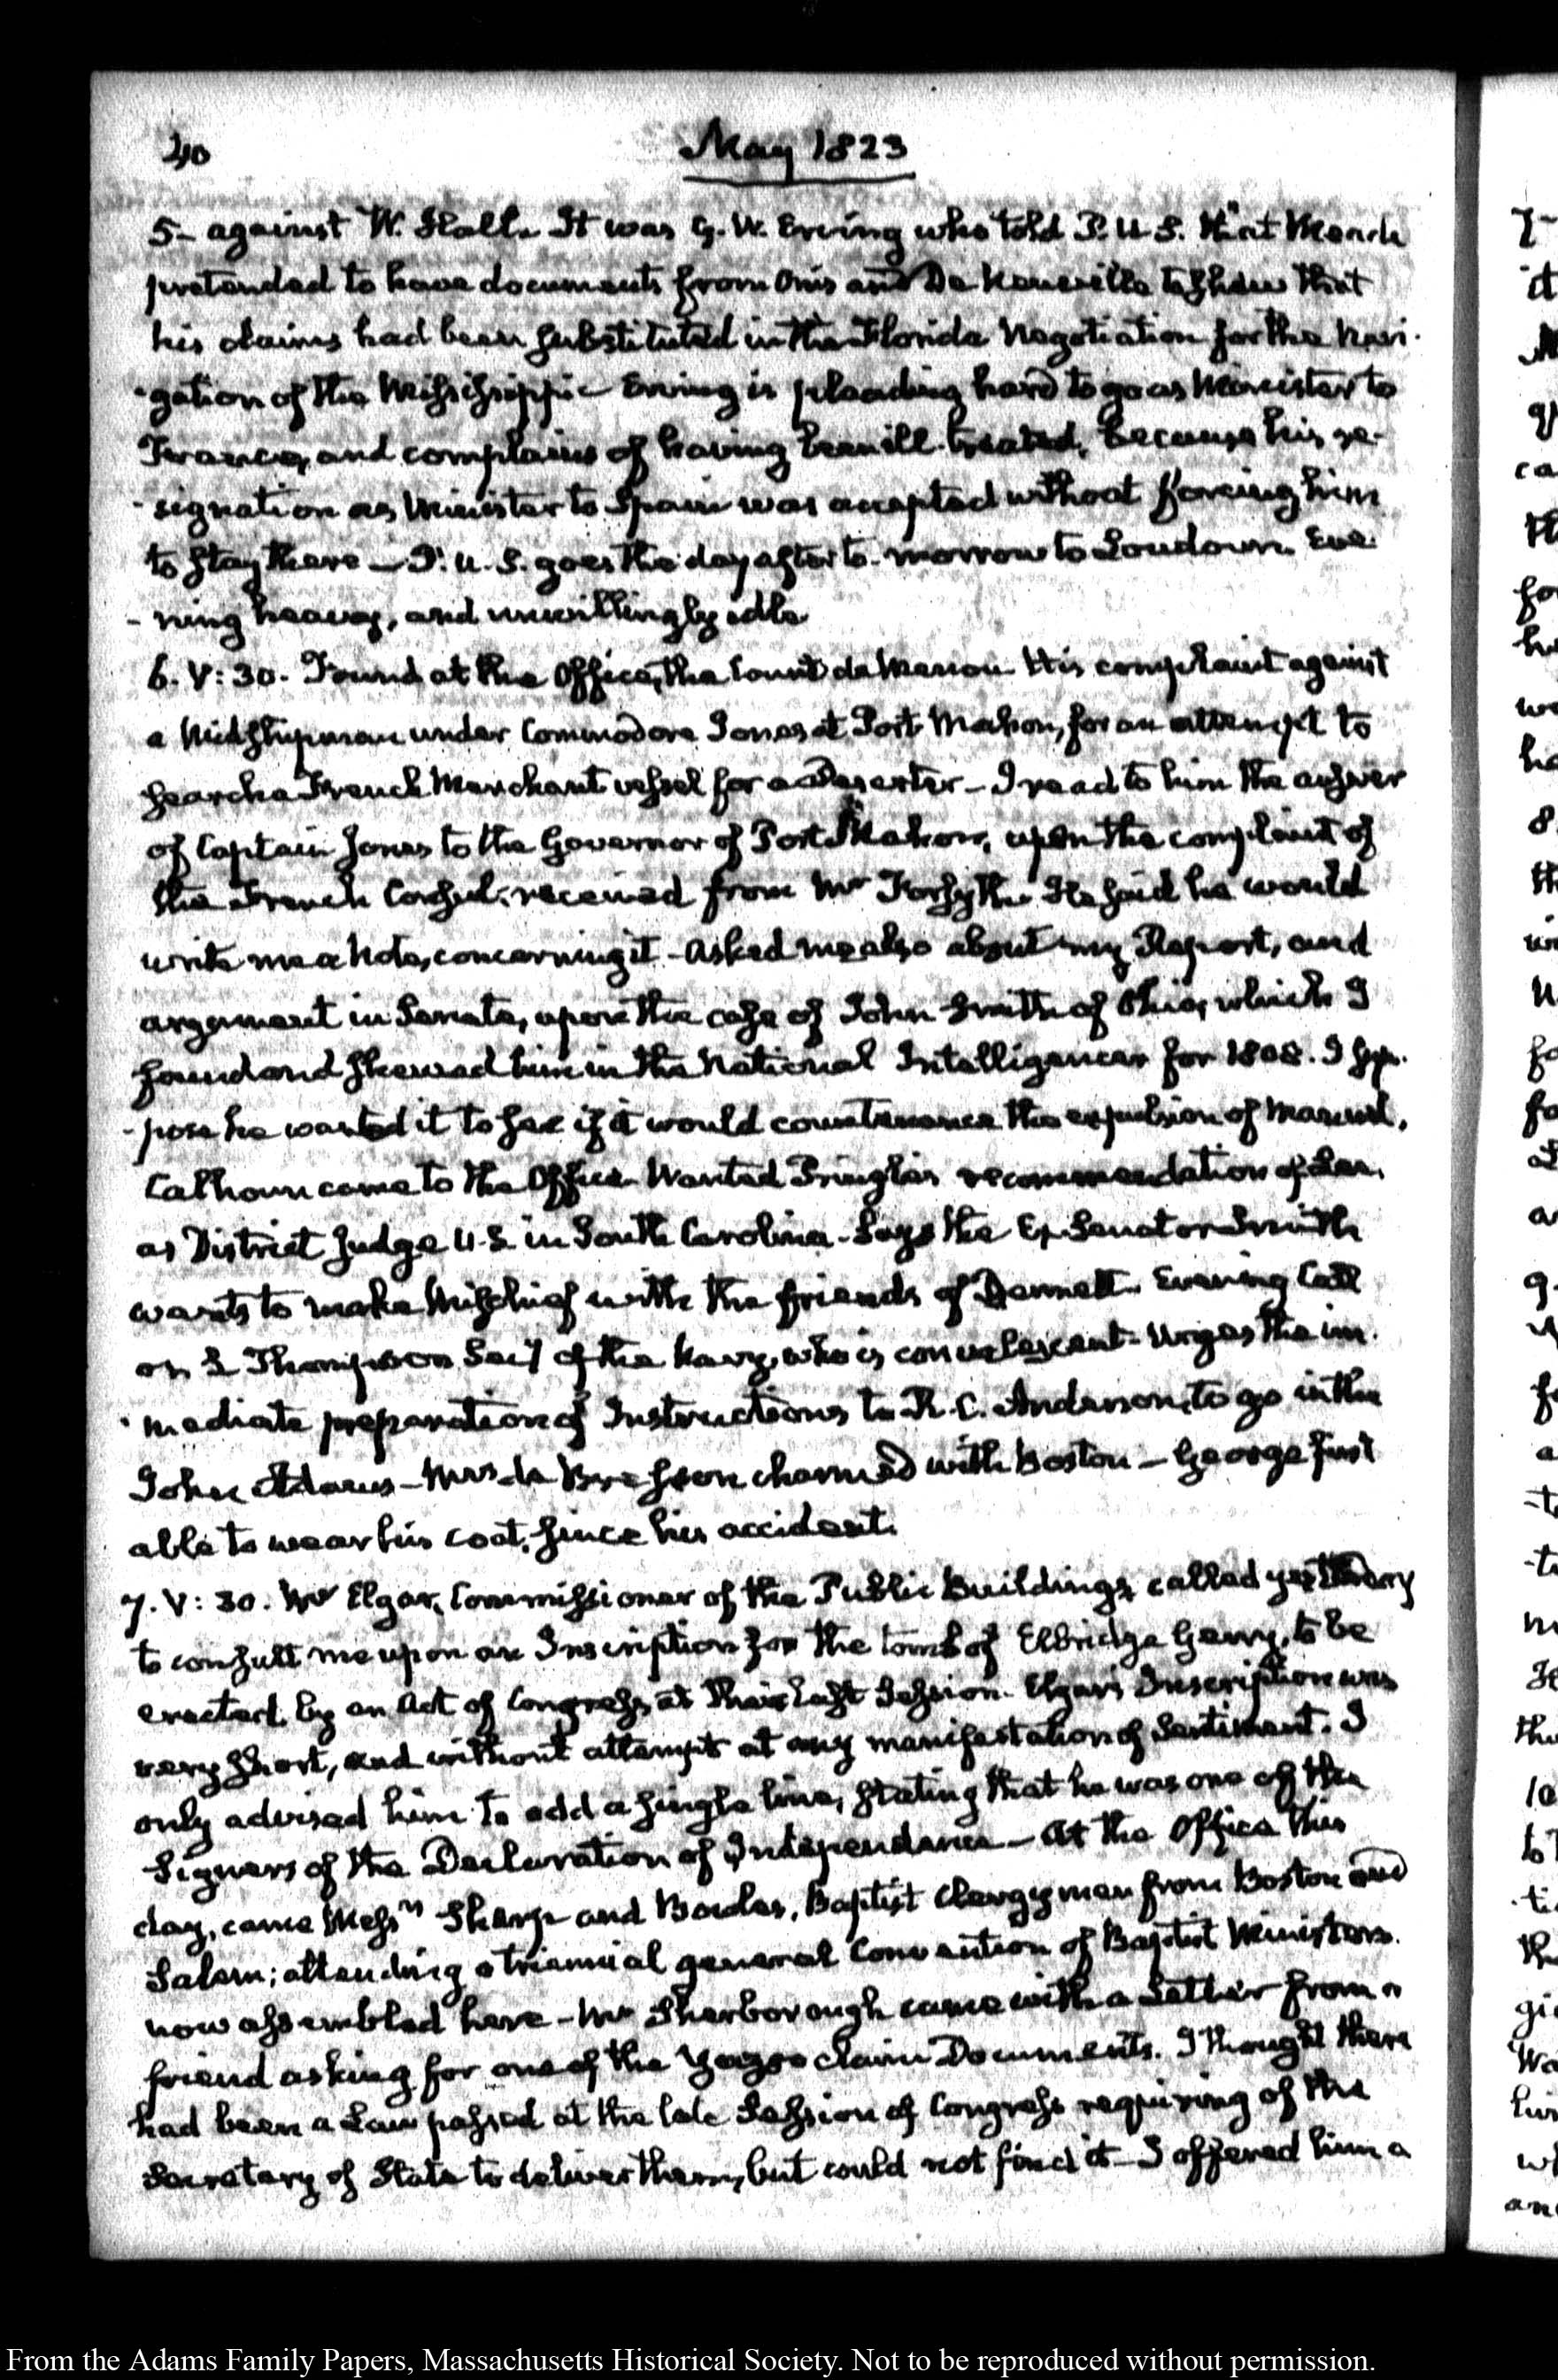 40
May 1823
5- against W. Hall. It was G. W. Erving who told P. U. S. that Meade
pretended to have documents from Onis and De Neuville to shew that
his claims had been substituted in the Florida Negotiation for the Navi-
-gation of the Mississippi - Erving is pleading hard to go as Minister to
France, and complains of having been ill treated, because his re-
-signation as Minister to Spain was accepted without forcing him
to stay there — P. U. S. goes the day after to-morrow to Loudoun. Eve-
-ning heavy, and unwillingly idle
6. V: 30. Found at the Office, the Count de Menou. His complaint against
a Midshipman under Commodore Jones at Port Mahon, for an attempt to
search a French Merchant vessel for a Deserter — I read to him the answer
of Captain Jones to the Governor of Port Mahon, upon the complaint of
the French Consul: received from Mr Forsyth. He said he would
write me a Note, concerning it - asked me also about my Report, and
argument in Senate, upon the case of John Smith of Ohio, which I
found and shewed him in the National Intelligencer for 1808. I sup-
-pose he wanted it to see if it would countenance the expulsion of Manuel.
Calhoun came to the Office. Wanted Pringle's recommendation of Lee,
as District Judge U.S. in South Carolina - Says the Ex Senator Smith
wants to make Mischief with the friends of Bennett. Evening Call
on S Thompson Secy of the Navy, who is convalescent - Urges the im-
-mediate preparation of Instructions to R. C. Anderson, to go in the
John Adams — Mrs de Bresson charmed with Boston — George first
able to wear his coat, since his accident.
7. V: 30. Mr Elgar, Commissioner of the Public Buildings called yesterday
to consult me upon an Inscription for the tomb of Elbridge Gerry, to be
erected by an Act of Congress at their last Session. Elgar's Inscription was
very short, and without attempt at any manifestation of Sentiment. I
only advised him to add a single line, stating that he was one of the
Signers of the Declaration of Independence — At the Office this
day, came Messrs Sharp and Bowles, Baptist Clergymen from Boston and
Salem; attending a triennial general Convention of Baptist Ministers
now assembled here - Mr Sherborough came with a Letter from a
friend asking for one of the Yazoo claim Documents. I thought there
had been a Law passed at the late Session of Congress requiring of the
Secretary of State to deliver them, but could not find it — I offered him a
From the Adams Family Papers, Massachusetts Historical Society. Not to be reproduced without permission.